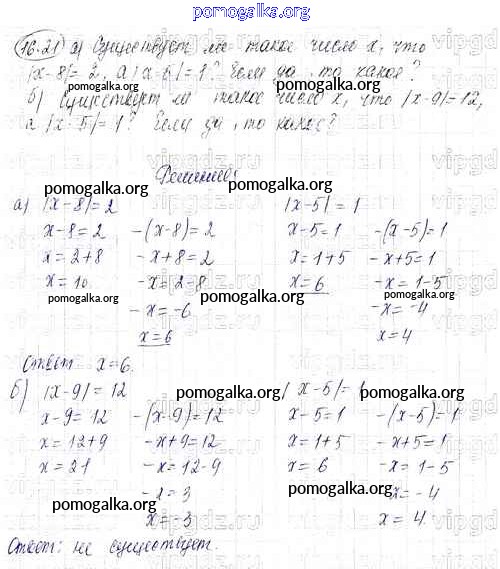 pomogalka.org
16.21 а) Существует ли такое число x, что
|x-8|=2, а |x-5|=1? Если да, то какое?
б) Существует ли такое число x, что |x-9|=12,
а |x-5|=1? Если да, то какое?
Решение:
а) |x-8|=2 |x-5|=1
x-8=2 -(x-8)=2 x-5=1 -(x-5)=1
x=2+8 -x+8=2 x=1+5 -x+5=1
x=10 -x=2-8 x=6 -x=1-5
-x=-6 -x=-4
x=6 x=4
Ответ x=6.
б) |x-9|=12 |x-5|=1
x-9=12 -(x-9)=12 x-5=1 -(x-5)=1
x=12+9 -x+9=12 x=1+5 -x+5=1
x=21 -x=12-9 x=6 -x=1-5
-x=3 -x=-4
x=-3 x=4
Ответ: не существует.
pomogalka.org